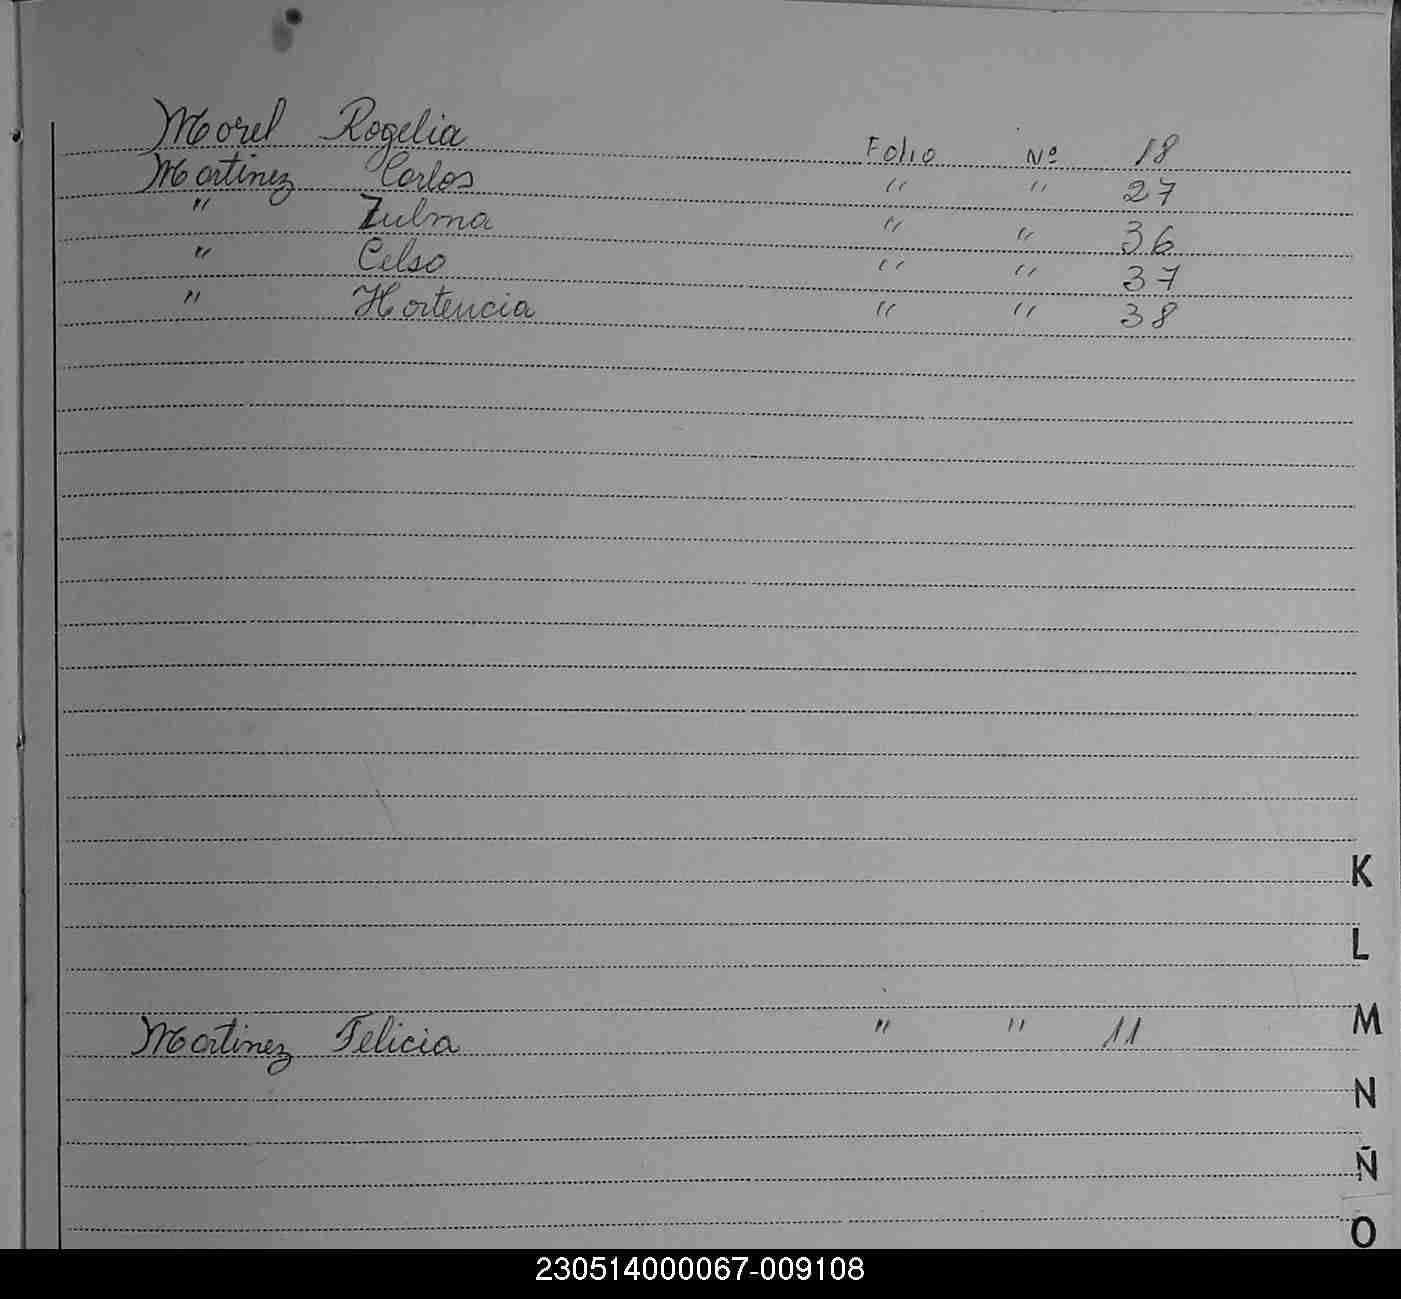 Morel Rogelia Folio Nº 18
Martinez Carlos " " 27
" Zulma " " 36
" Celso " " 37
" Hortencia " " 38
K
L
Martinez Felicia " " 11
M
N
Ñ
O
230514000067-009108